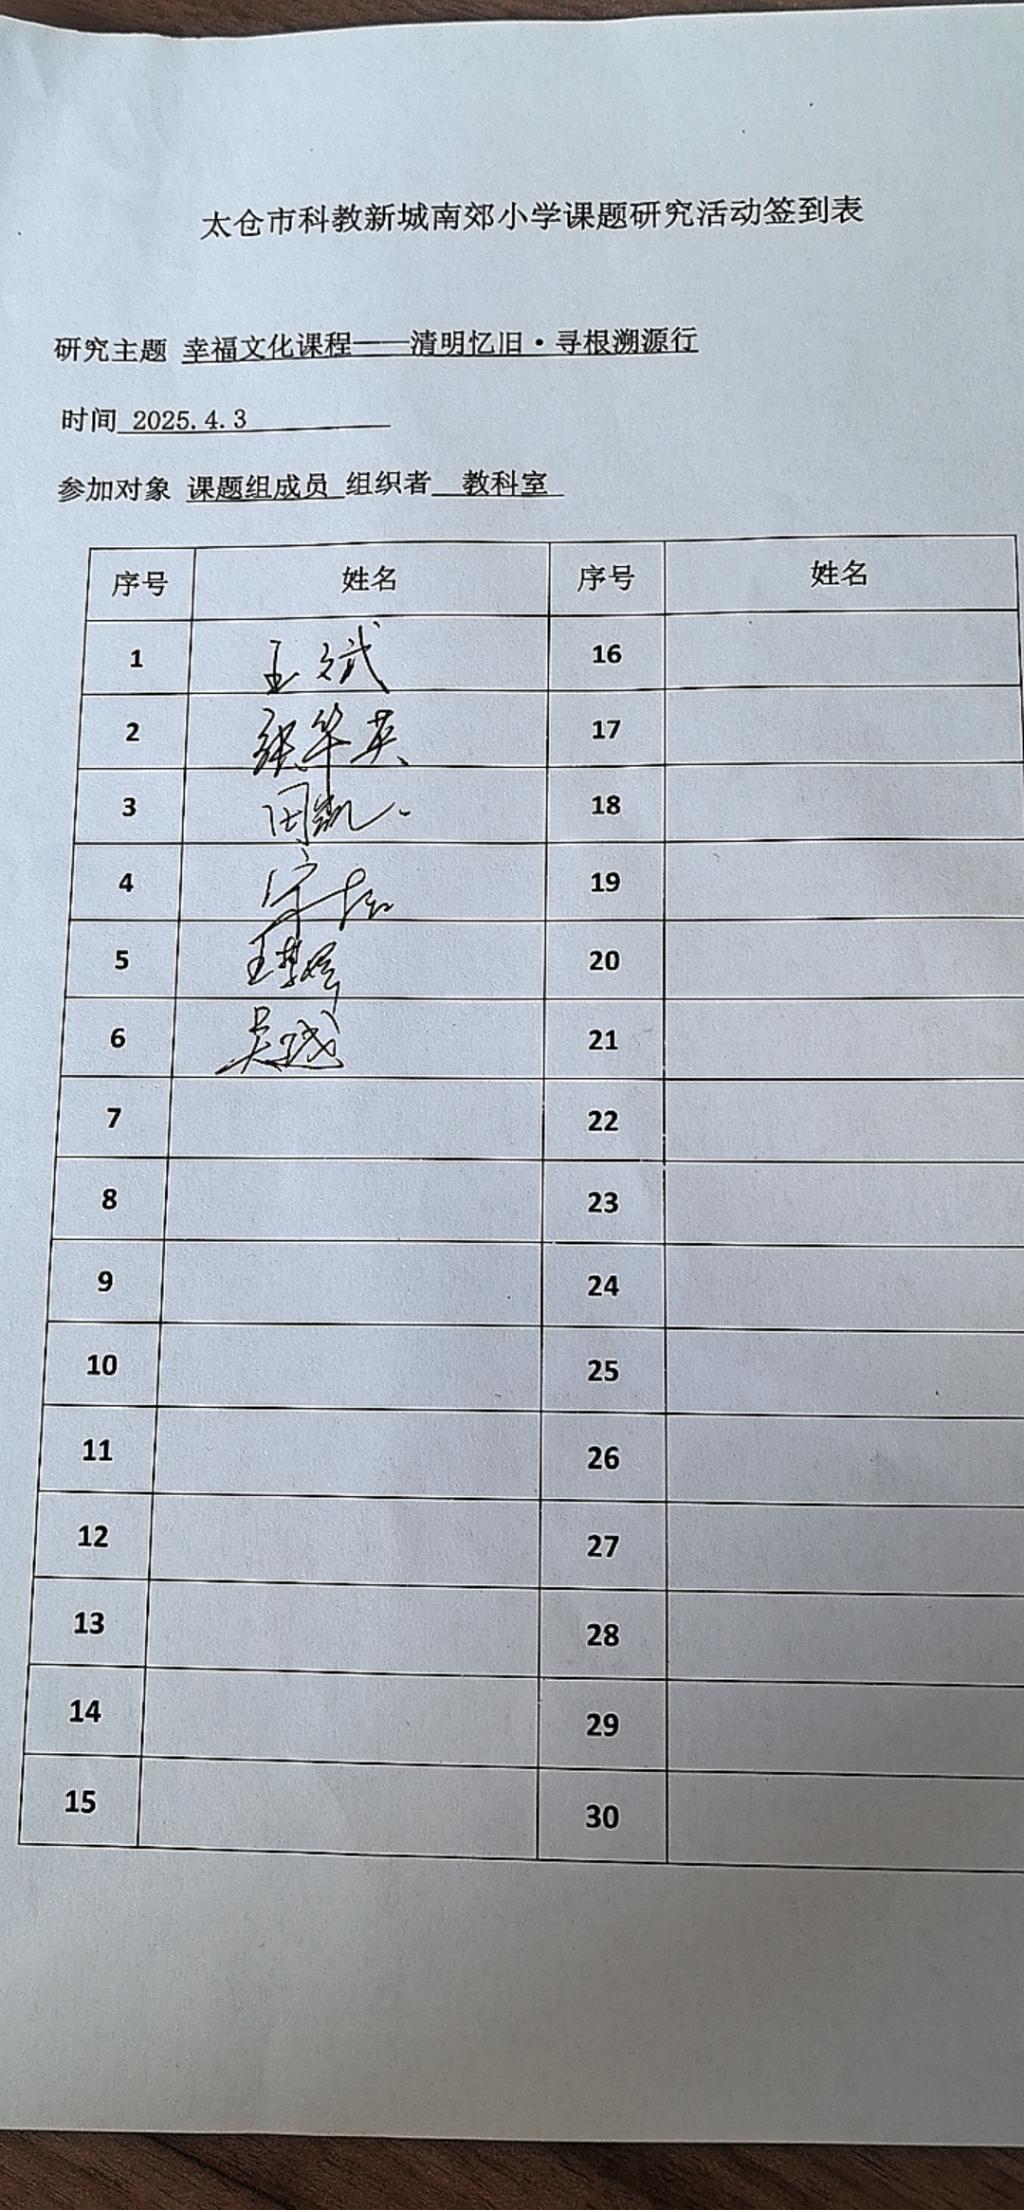 太仓市科教新城南郊小学课题研究活动签到表
研究主题 幸福文化课程——清明忆旧·寻根溯源行
时间 2025.4.3
参加对象 课题组成员 组织者 教科室
序号 姓名 序号 姓名
1 王斌 16
2 张华英 17
3 周凯 18
4 19
5 王 20
6 吴 21
7 22
8 23
9 24
10 25
11 26
12 27
13 28
14 29
15 30